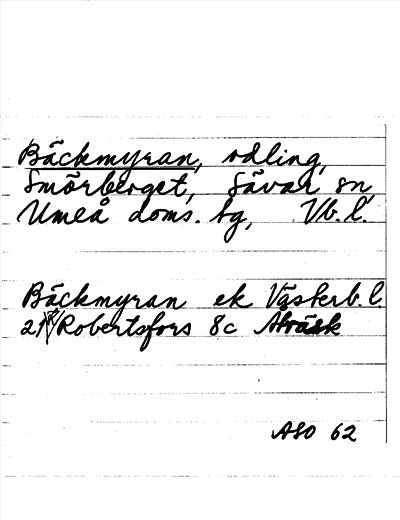 Bäckmyran, odling,
Smörberget, Sävar sn,
Umeå doms. tg, Vb. l.
Bäckmyran ek Västerb. l.
21 Robertsfors 8c
ASO 62